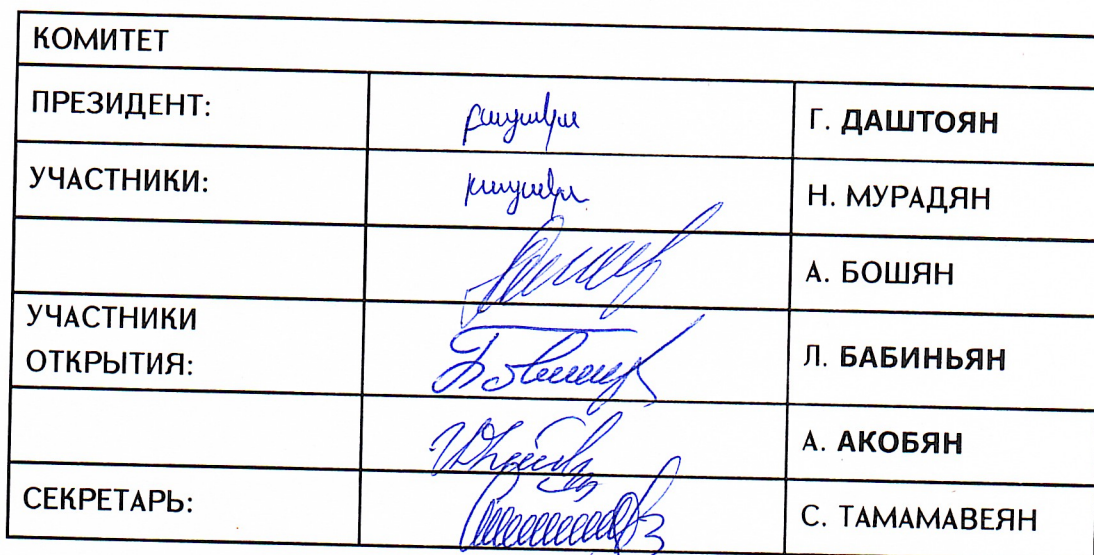 КОМИТЕТ
ПРЕЗИДЕНТ: Г. ДАШТОЯН
УЧАСТНИКИ: Н. МУРАДЯН
А. БОШЯН
УЧАСТНИКИ
ОТКРЫТИЯ: Л. БАБИНЬЯН
А. АКОБЯН
СЕКРЕТАРЬ: С. ТАМАМАВЕЯН